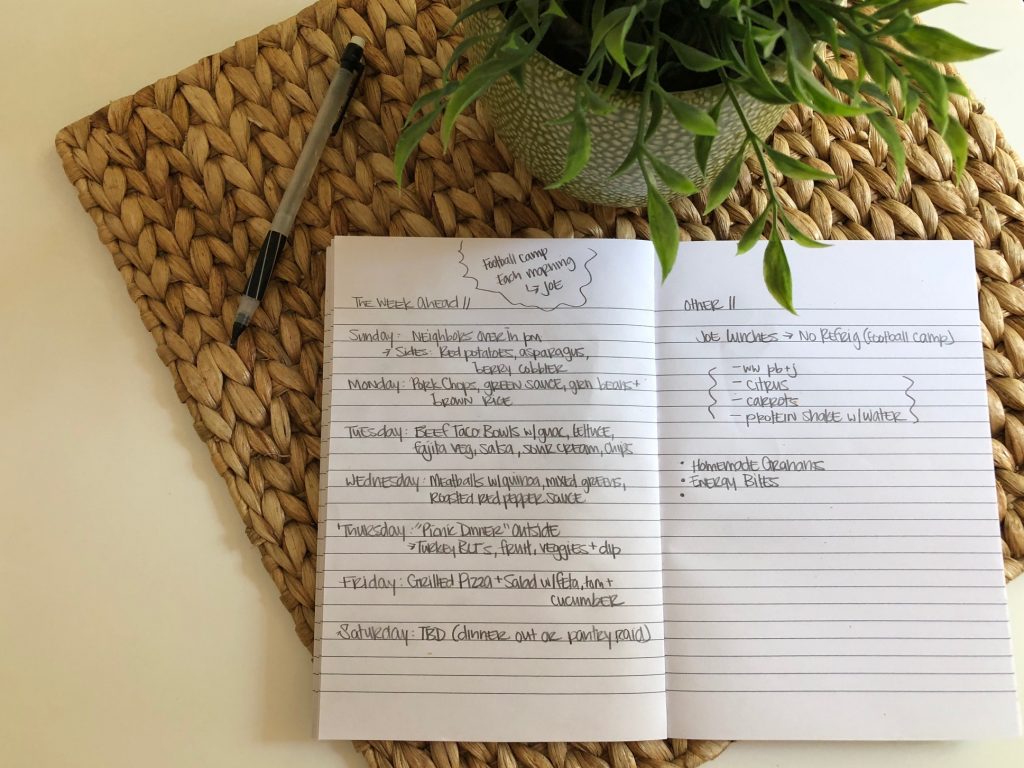 Football camp
Each morning
↳ Joe
The Week Ahead //
Sunday: Neighbors over in pm
→ Sides: Red potatoes, asparagus,
berry cobbler
Monday: Pork Chops, green sauce, grn beans +
brown rice
Tuesday: Beef Taco Bowls w/ guac, lettuce,
fajita veg, salsa, sour cream, chips
Wednesday: Meatballs w/ quinoa, mixed greens,
roasted red pepper sauce
Thursday: "Picnic Dinner" outside
→ Turkey BLTs, fruit, veggies + dip
Friday: Grilled Pizza + Salad w/ feta, tom +
cucumber
Saturday: TBD (dinner out or pantry raid)
Other //
Joe Lunches → No Refrig (football camp)
- ww pb+j
- citrus
- carrots
- protein shake w/ water
• Homemade Grahams
• Energy Bites
•